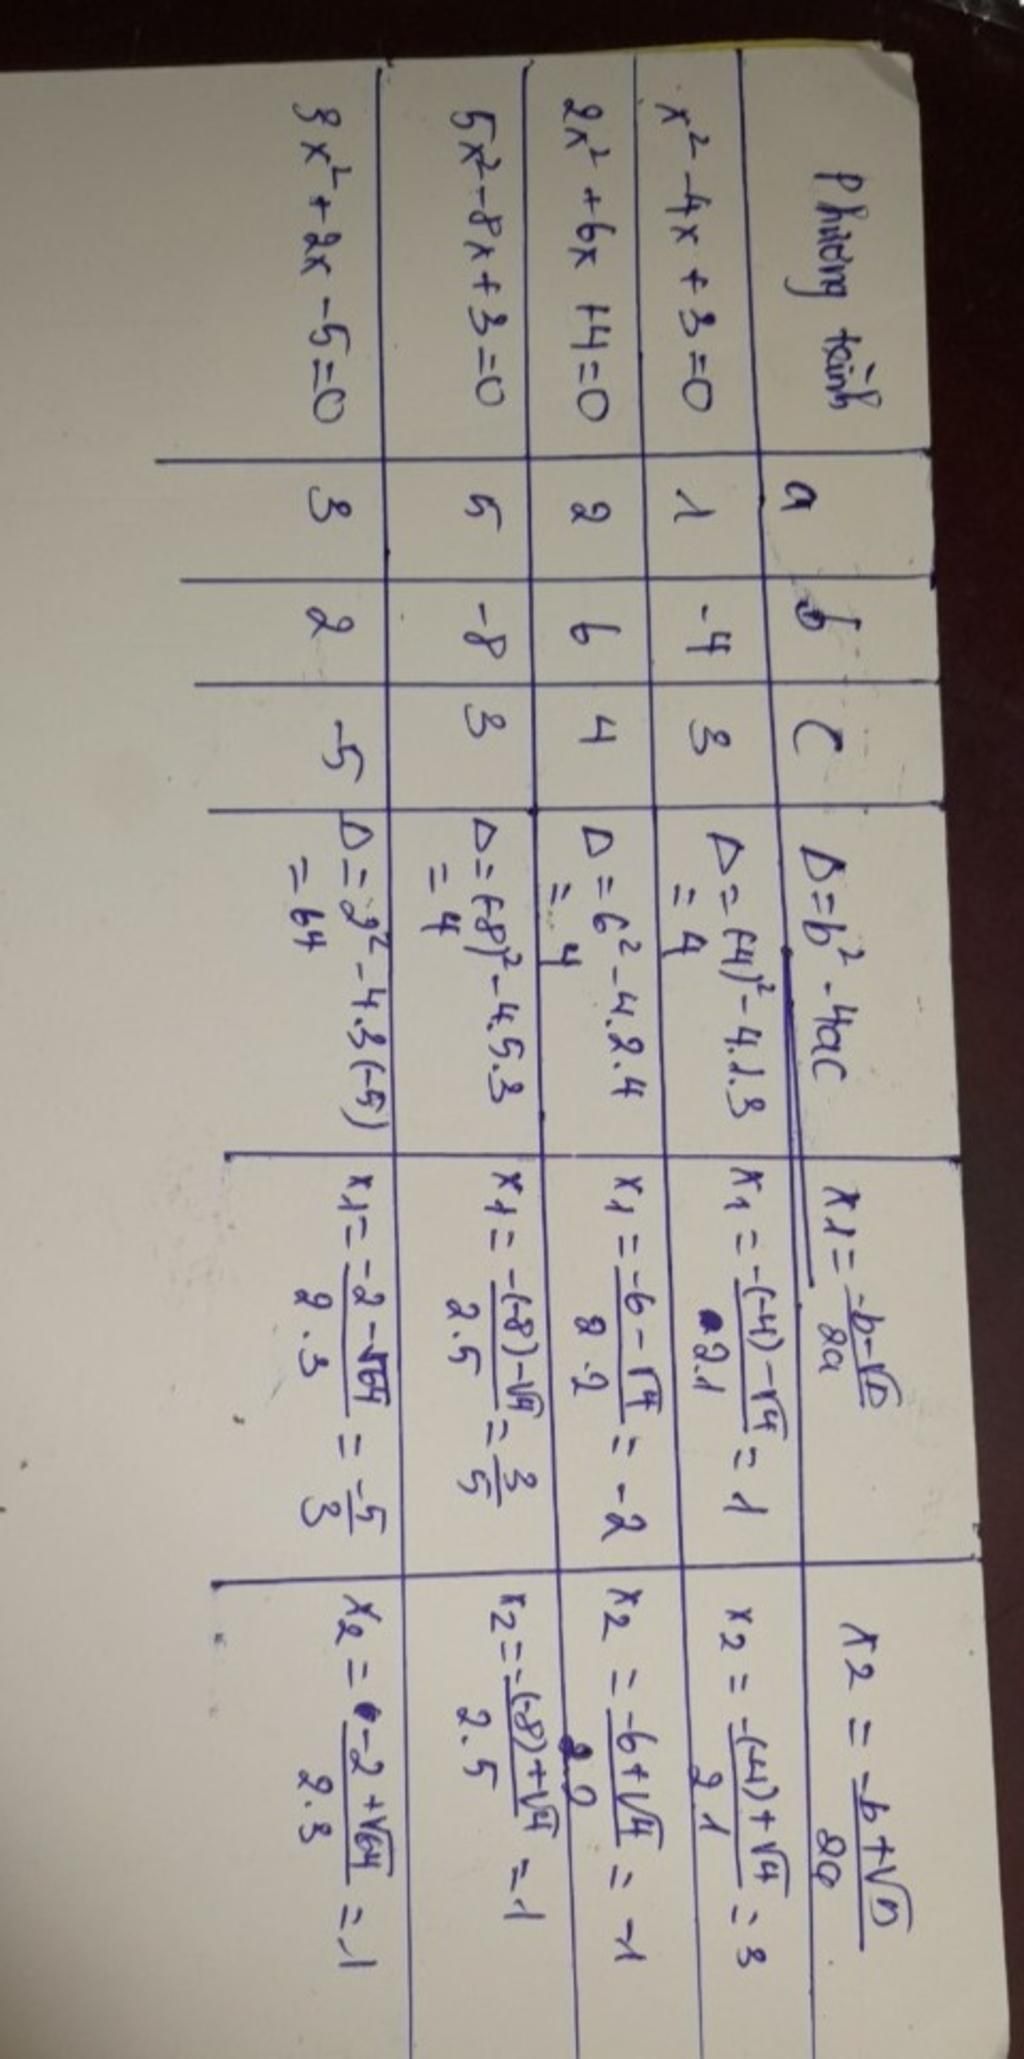 Phương trình a b c Δ=b² - 4ac x1 = -b-√Δ/2a x2 = -b+√Δ/2a
x² - 4x + 3=0 1 -4 3 Δ=(-4)² - 4.1.3 = 4 x1 = -(-4)-√4/2.1 = 1 x2 = -(-4)+√4/2.1 = 3
2x² + 6x + 4=0 2 6 4 Δ = 6² - 4.2.4 = 4 x1 = -6-√4/2.2 = -2 x2 = -6+√4/2.2 = -1
5x² - 8x + 3=0 5 -8 3 Δ=(-8)² - 4.5.3 = 4 x1 = -(-8)-√4/2.5 = 3/5 x2 = -(-8)+√4/2.5 = 1
3x² + 2x - 5=0 3 2 -5 Δ = 2² - 4.3(-5) = 64 x1 = -2-√64/2.3 = -5/3 x2 = -2+√64/2.3 = 1